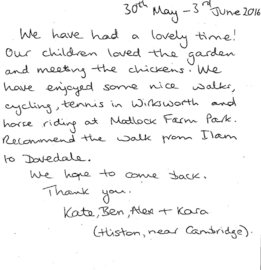 30th May - 3rd June 2016
We have had a lovely time!
Our children loved the garden
and meeting the chickens. We
have enjoyed some nice walks,
cycling, tennis in Wirksworth and
horse riding at Matlock Farm Park.
Recommend the walk from Ilam
to Dovedale.
We hope to come back.
Thank you.
Kate, Ben, Alex + Kara
(Histon, near Cambridge).